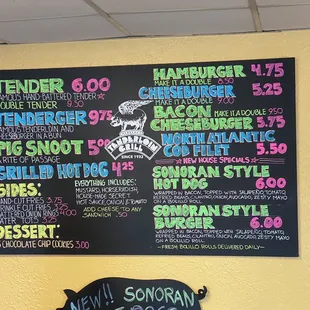 TENDER 6.00
FAMOUS HAND-BATTERED TENDER
DOUBLE TENDER 9.50
TENDERGER 9.75
FAMOUS TENDERLOIN AND
CHEESEBURGER IN A BUN
PIG SNOOT 5.00
A RITE OF PASSAGE
GRILLED HOT DOG 4.25
EVERYTHING INCLUDES:
MUSTARD, HORSERADISH,
HOUSE-MADE SECRET
HOT SAUCE, ONION, & TOMATO
ADD CHEESE TO ANY
SANDWICH .50
SIDES:
HAND-CUT FRIES
CRINKLE CUT FRIES
BATTERED ONION RINGS 4.00
TATER TOTS 3.25
DESSERT:
CHOCOLATE CHIP COOKIES 3.00
TENDERLOIN
GRILL
SINCE 1932
HAMBURGER 4.75
MAKE IT A DOUBLE 8.50
CHEESEBURGER 5.25
MAKE IT A DOUBLE 9.00
BACON MAKE IT A DOUBLE 9.50
CHEESEBURGER 5.75
NORTH ATLANTIC
COD FILET 5.50
NEW HOUSE SPECIALS
SONORAN STYLE
HOT DOG 6.00
WRAPPED IN BACON, TOPPED WITH JALAPEÑO, TOMATO
REFRIED BEANS, COTIJA, ONION, AVOCADO, ZESTY MAYO
ON A BOLILLO ROLL
SONORAN STYLE
BURGER 6.00
WRAPPED IN BACON, TOPPED WITH JALAPEÑO, TOMATO
REFRIED BEANS, ONION, AVOCADO, ZESTY MAYO
ON A BOLILLO ROLL
~FRESH BOLILLO ROLLS DELIVERED DAILY~
NEW!! SONORAN